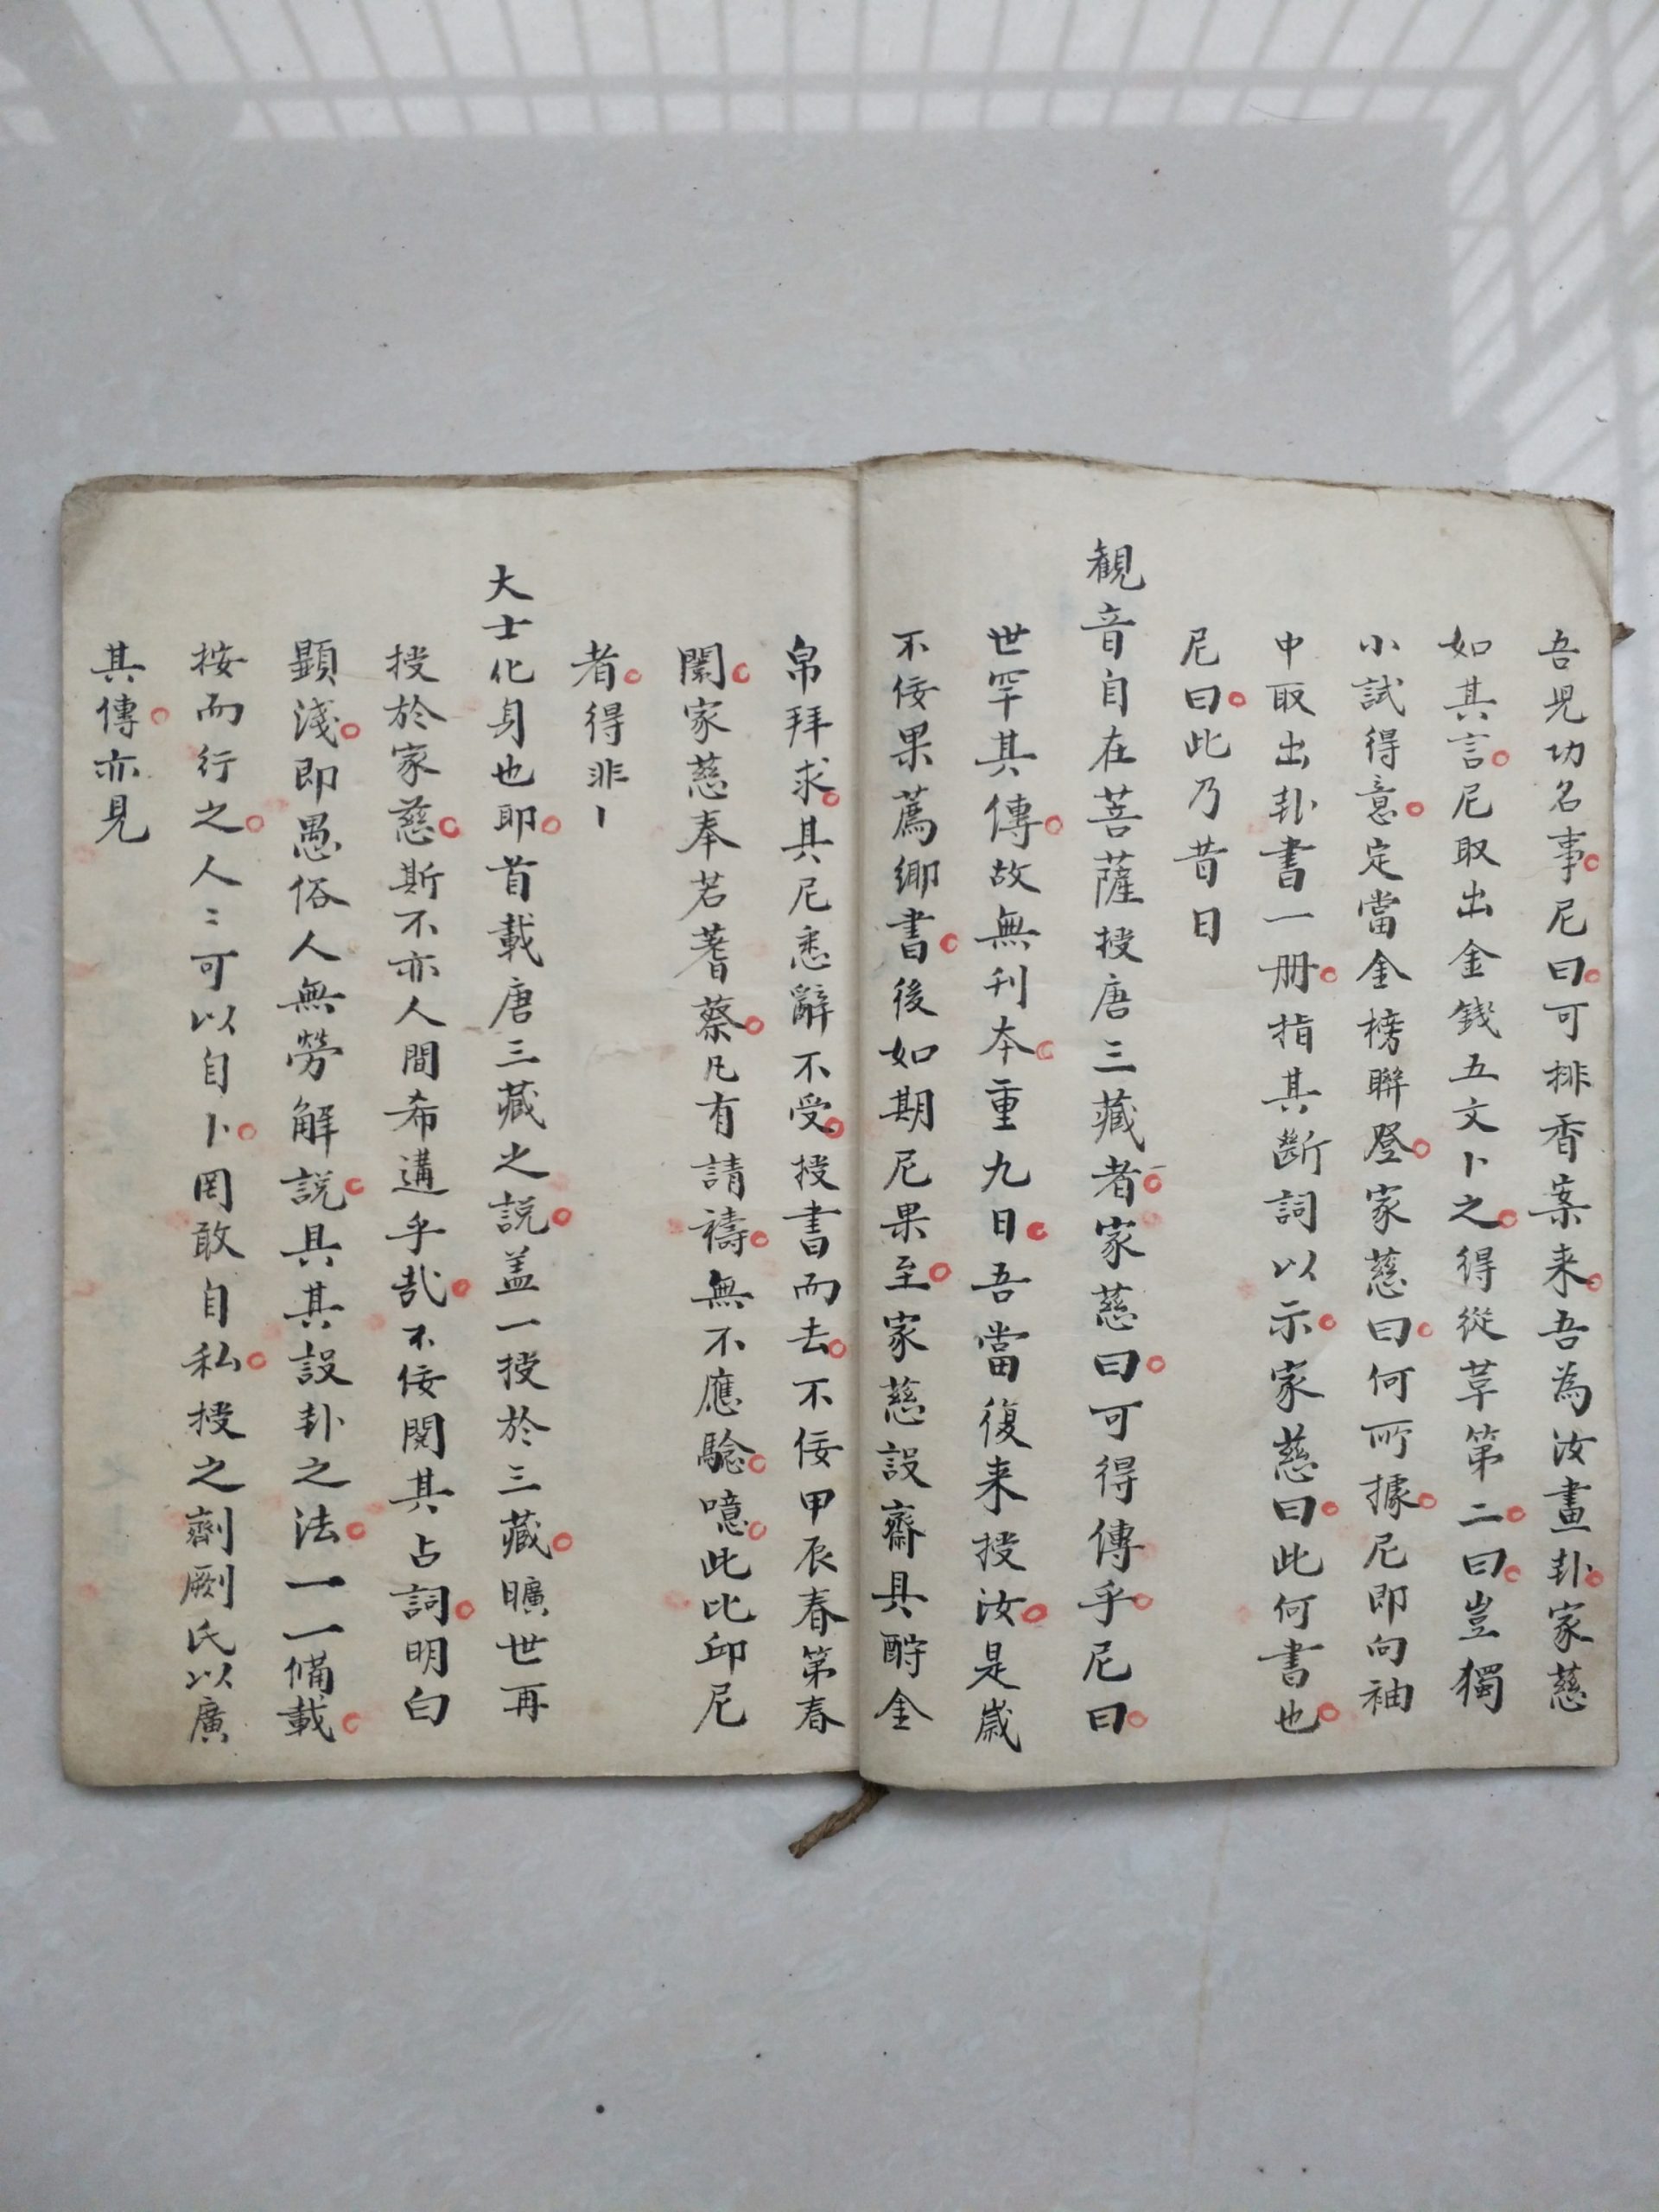 吾児功名事。尼曰。可排香案来。吾為汝畫卦。家慈
如其言。尼取出金錢五文卜之。得從草第二。曰。豈獨
小試得意。定當金榜聯登。家慈曰。何所據。尼即向袖
中取出卦書一册。指其斷詞以示。家慈曰。此何書也。
尼曰。此乃昔日
観音自在菩薩授唐三藏者。家慈曰。可得傳乎。尼曰。
世罕其傳。故無刊本。重九日。吾當復来授汝。是歲
不佞果薦鄉書。後如期尼果至。家慈設齋具酧金
帛拜求。其尼悉辭不受。授書而去。不佞甲辰春第春
闈。家慈奉若蓍蔡。凡有請禱。無不應驗。噫。此比邱尼
者。得非
大士化身也耶。首載唐三藏之説。盖一授於三藏。曠世再
授於家慈。斯不亦人間希遘乎哉。不佞閱其占詞。明白
顯淺。即愚俗人無勞解説。具其設卦之法。一一備載。
按而行之。人〻可以自卜。罔敢自私。授之劑劂氏以廣
其傳。亦見